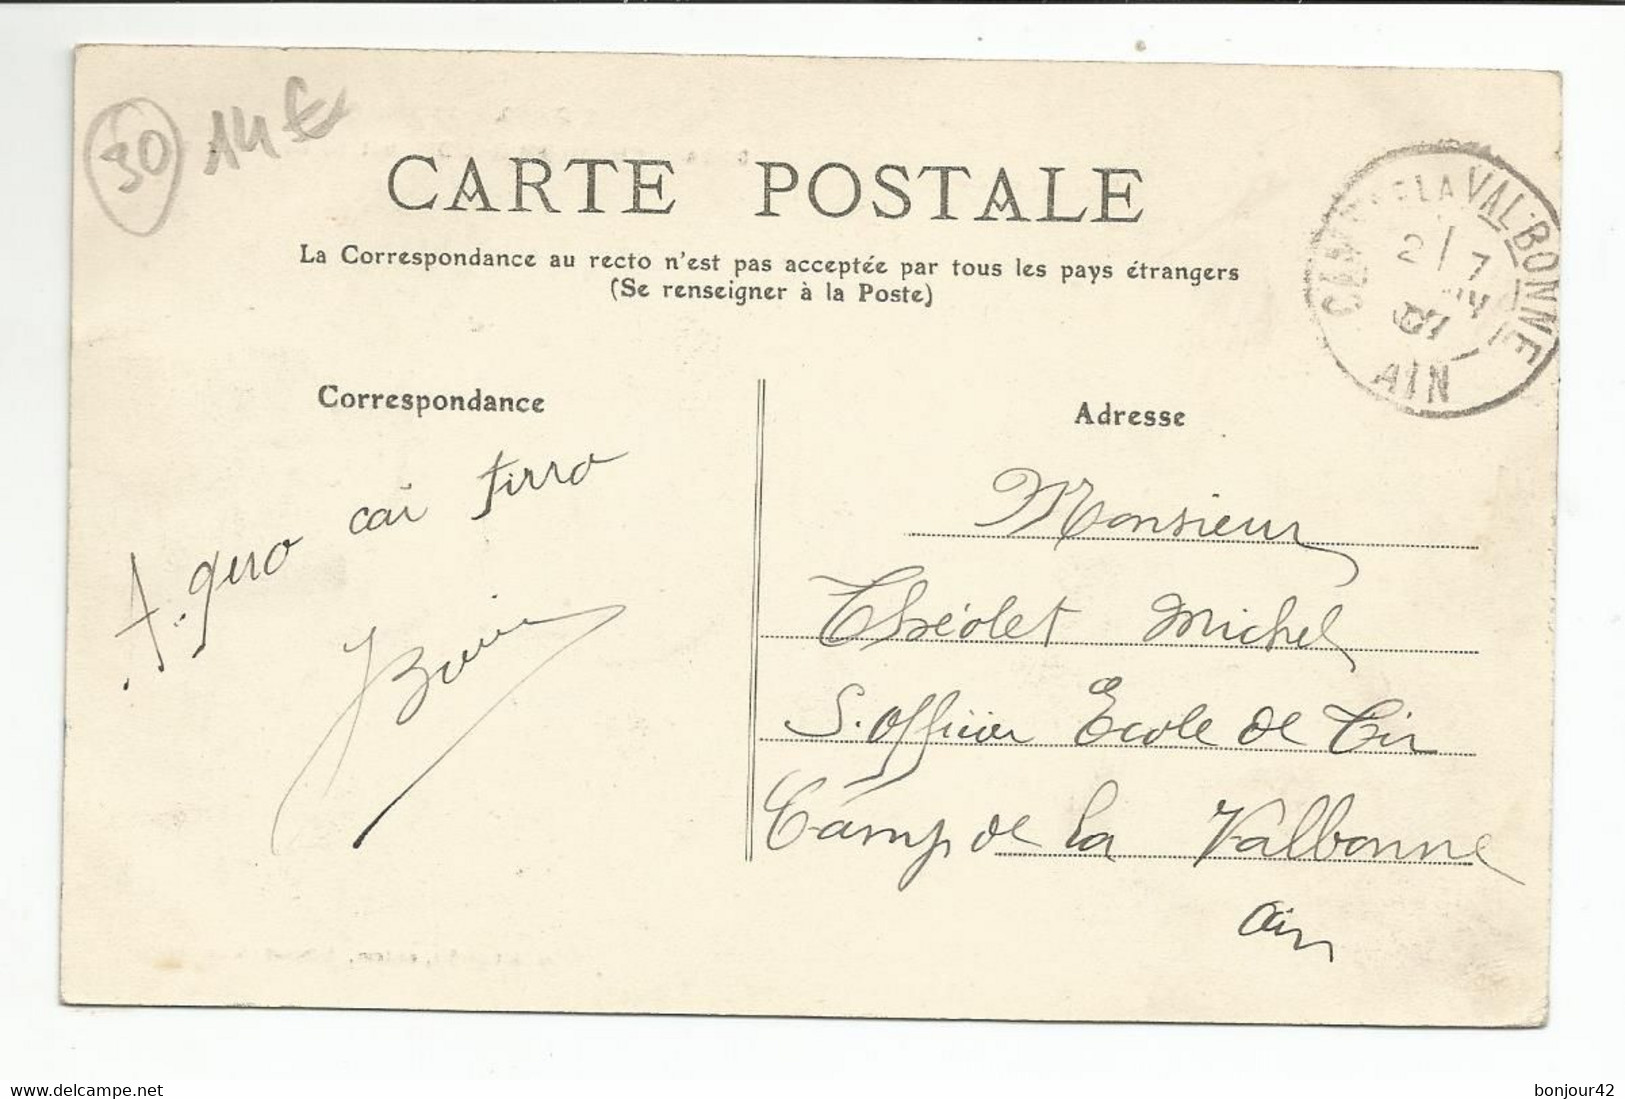 30 14€
CARTE POSTALE
La Correspondance au recto n'est pas acceptée par tous les pays étrangers
(Se renseigner à la Poste)
LA VALBONNE
2 / 7
AIN
Correspondance
Adresse
A. quro cai tirro
Monsieur
Théolet Michel
S. officier Ecole de Tir
Camp de la Valbonne
Ain
www.delcampe.net
bonjour42